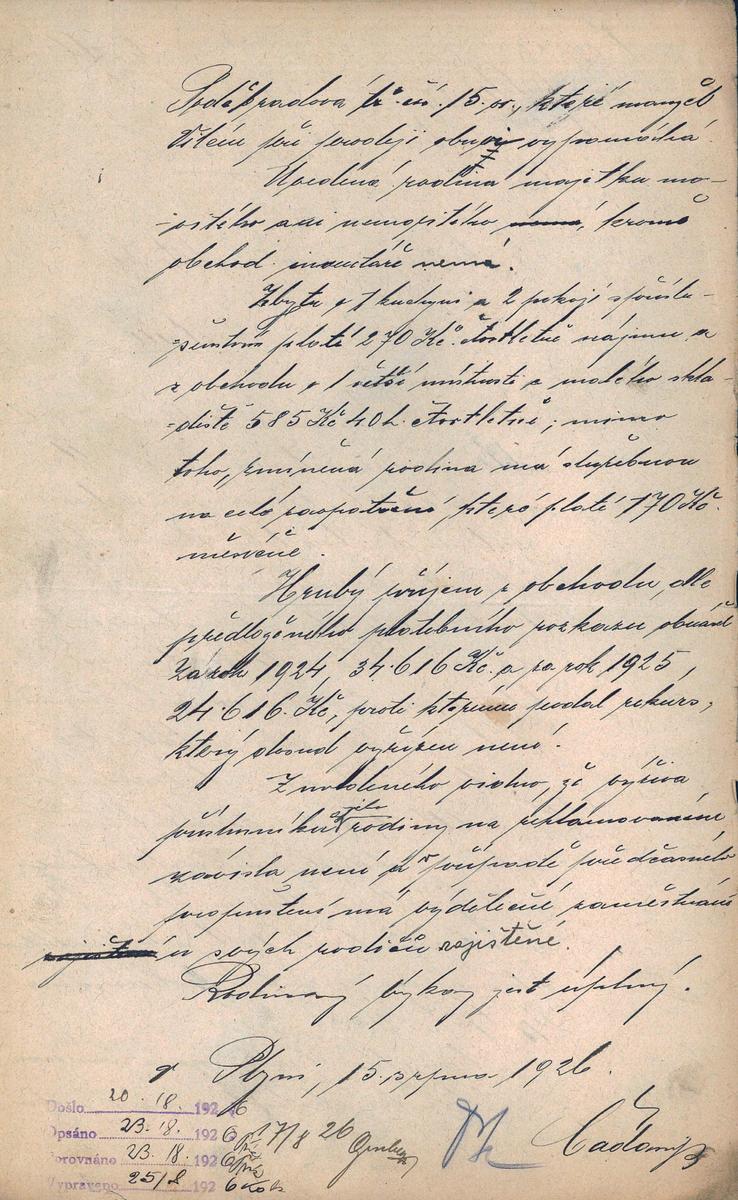 Poděbradova tř. čís. 15. , která manžel
při prodeji obuvi vypomáhá.
Uvedená rodina majetku mo-
-vitého ani nemovitého kromě
obchod. inventáře nemá.
Z bytu o 1 kuchyni a 2 pokojí s příslu-
-šenstvím platí 270 Kč. čtvrtletně nájmu a
z obchodu o 1 větší místnosti a malého skla-
-diště 585 Kč 40 h. čtvrtletně; mimo
toho, zmíněná rodina má služebnou
na celé zaopatření, které platí 170 Kč.
měsíčně.
Hrubý příjem z obchodu, dle
předloženého platebního rozkazu obnáší
za rok 1924, 34.616 Kč. a za rok 1925,
24.616. Kč, proti kterému podal rekurs,
který dosud vyřízen není.
Z uvedeného vidno, že výživa
příslušníků jeho rodiny na reklamovaném
závislá není a v případě předčasného
propuštění má výdělečné zaměstnání
u svých rodičů zajištěné.
Rodinný výkaz jest úplný.
V Plzni, 15. srpna 1926.
Došlo 20./8. 1926
Opsáno 23./8. 1926 17/8 26
Porovnáno 23./8. 1926
Vypraveno 25/8 1926